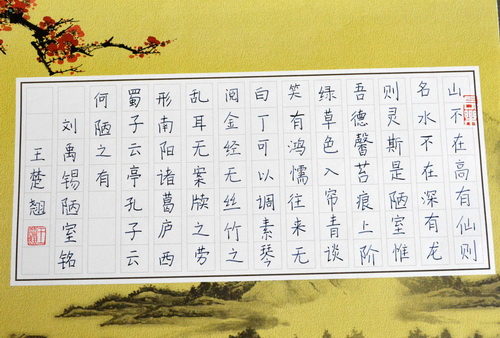 山不在高有仙则
名水不在深有龙
则灵斯是陋室惟
吾德馨苔痕上阶
绿草色入帘青谈
笑有鸿懦往来无
白丁可以调素琴
阅金经无丝竹之
乱耳无案牍之劳
形南阳诸葛庐西
蜀子云亭孔子云
何陋之有
刘禹锡陋室铭
王楚翘